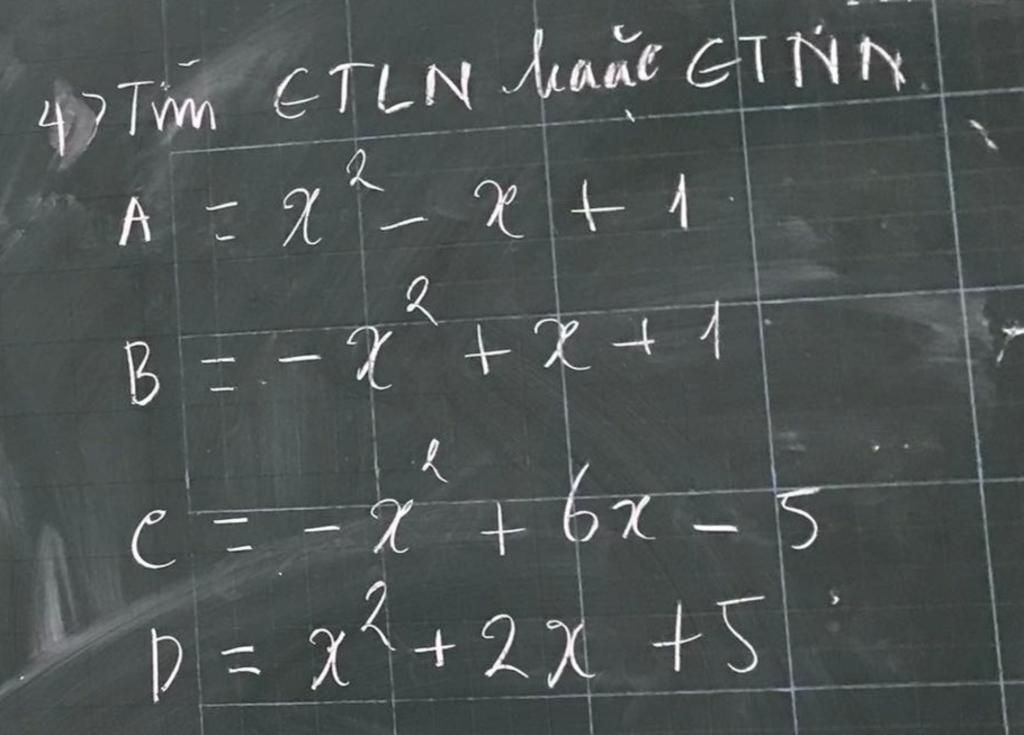 4) Tìm GTLN hoặc GTNN
A = x² - x + 1
B = - x² + x + 1
C = - x² + 6x - 5
D = x² + 2x + 5